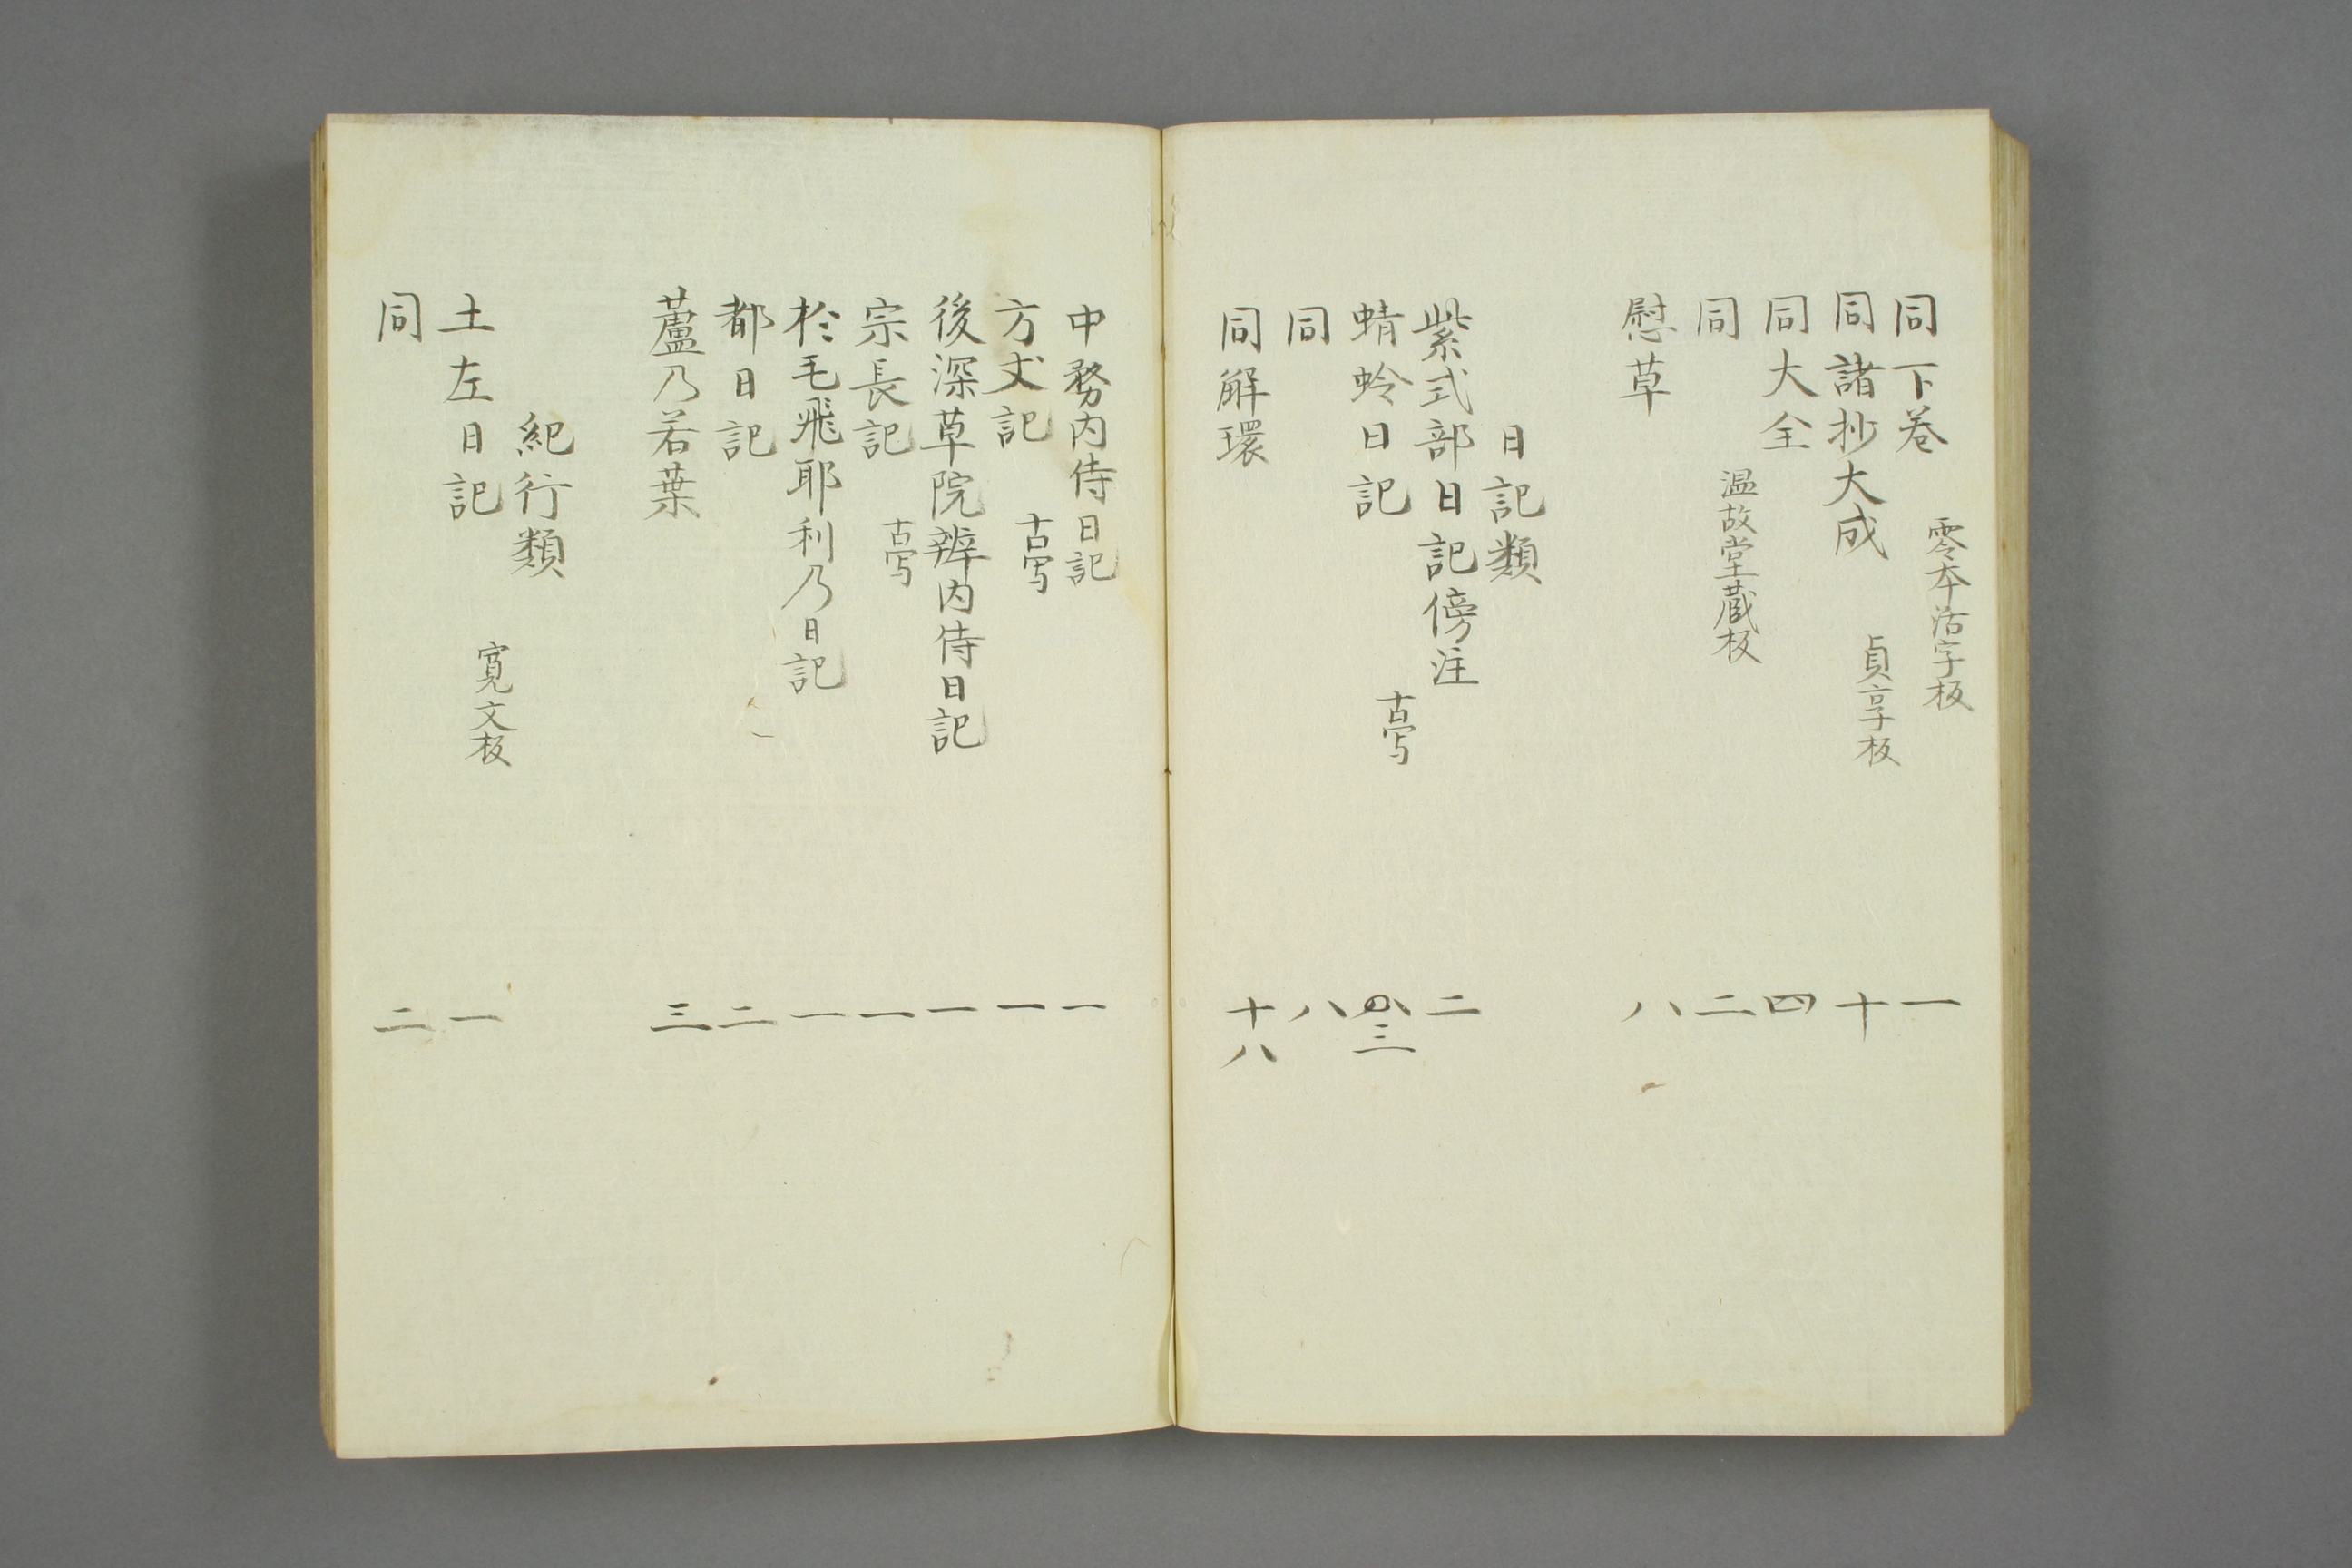 同下巻 零本活字板 一
同諸抄大成 貞享板 十
同大全 四
同 温故堂蔵板 二
慰草 八
日記類
紫式部日記傍注 二
蜻蛉日記 古写 三
同 八
同解環 十八
中務内侍日記 一
方丈記 古写 一
後深草院辨内侍日記 一
宗長記 古写 一
於毛飛耶利乃日記 一
都日記 二
蘆乃若葉 三
紀行類
土左日記 寛文板 一
同 二